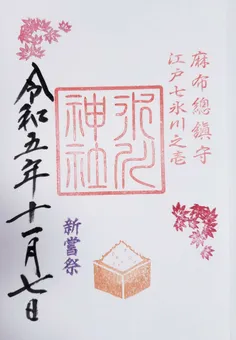 麻布總鎮守
江戸七氷川之壱
氷川神社
新嘗祭
令和五年十一月七日